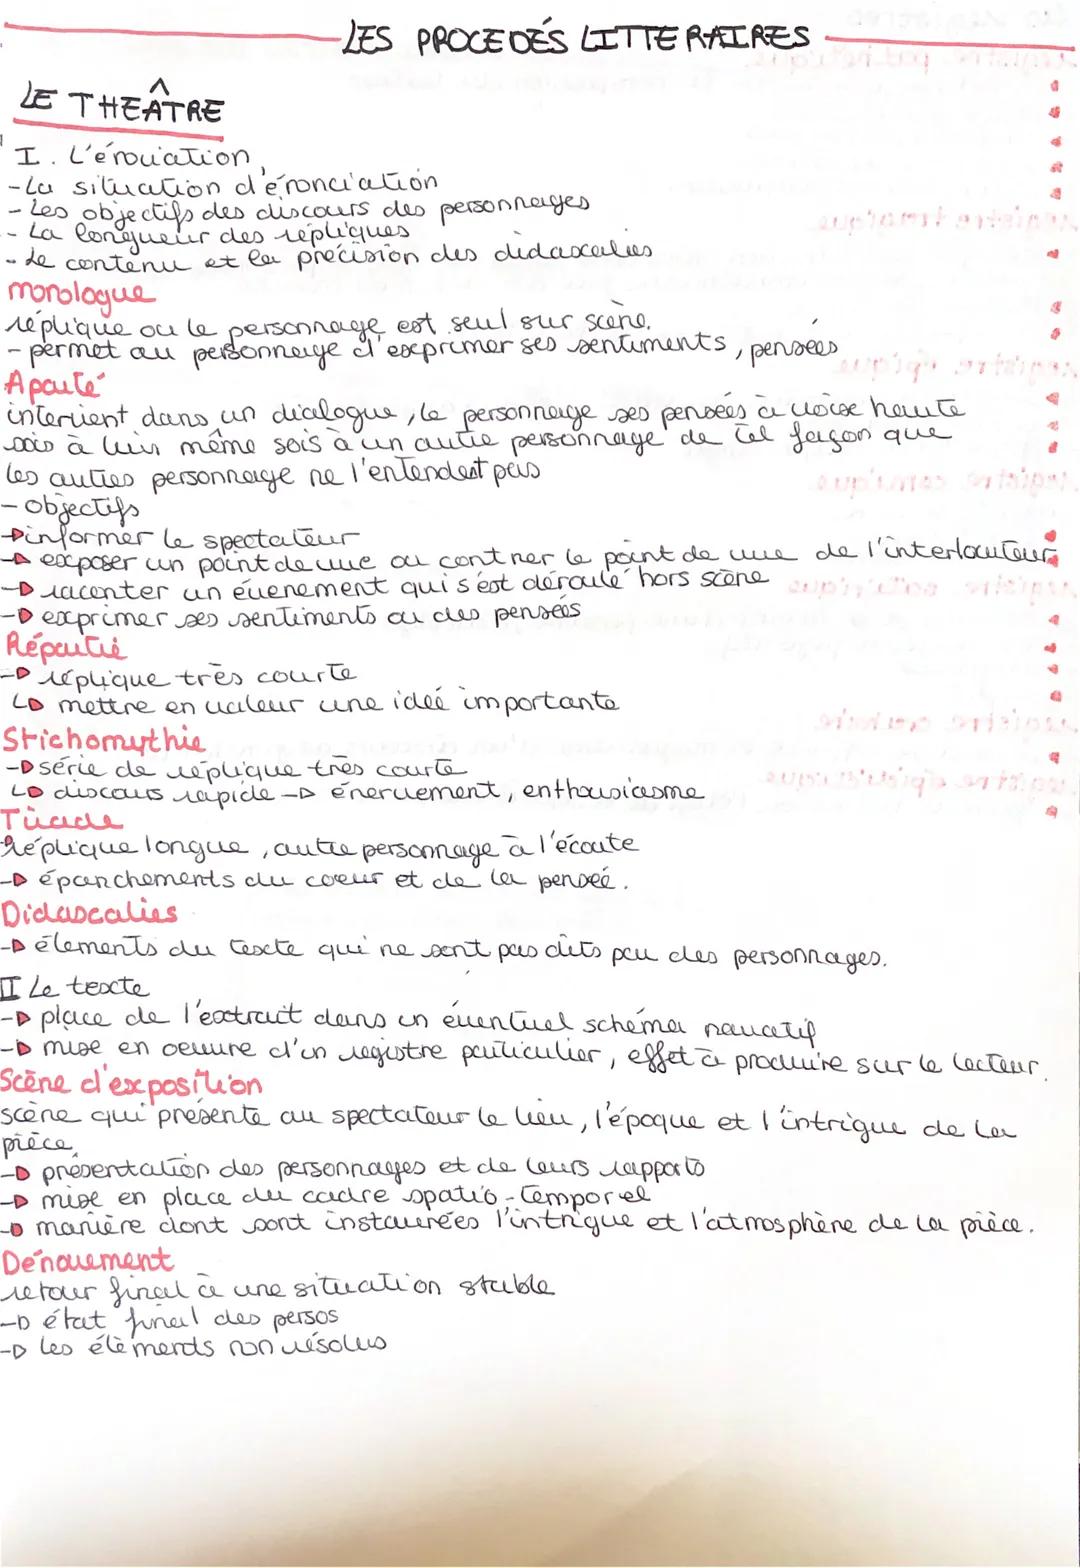 LES PROCEDÉS LITTERAIRES
LE THEÂTRE
I. L'énonciation
-La situation d'énonciation
- Les objectifs des discours des personnages
- La longueur des répliques
- Le contenu et la précision des didascalies
monologue
réplique ou le personnage est seul sur scène.
- permet au personnage d'exprimer ses sentiments, pensées
Aparté
intervient dans un dialogue, le personnage ses pensées à voixe haute
sois à luis même sois à un autre personnage de tel façon que
les autres personnage ne l'entendent pas
- objectifs
→informer le spectateur
→ exposer un point de vue ou contrer le point de vue de l'interlocuteur
→ raconter un évenement qui s'est déroulé hors scène
→ exprimer ses sentiments ou des pensées
Répartie
→ réplique très courte
↳ mettre en valeur une ideé importante
Stichomythie
→ série de réplique très courte
↳ discours rapide → énervement, enthousiasme
Tirade
Réplique longue, autre personnage à l'écoute
→ épanchements du coeur et de la penseé.
Didascalies
→ élements du texte qui ne sont pas dits par des personnages.
II Le texte
→ place de l'extrait dans un éventuel schéma narratif
→ mise en oeuvre d'un registre particulier, effet à produire sur le lecteur.
Scène d'exposition
scène qui présente au spectateur le lieu, l'époque et l'intrigue de la
pièce.
→ présentation des personnages et de leurs rapports
→ mise en place du cadre spatio-temporel
→ manière dont sont instaurées l'intrigue et l'atmosphère de la pièce.
Dénouement
retour final à une situation stable
→ état final des persos
→ les élèments non résolus